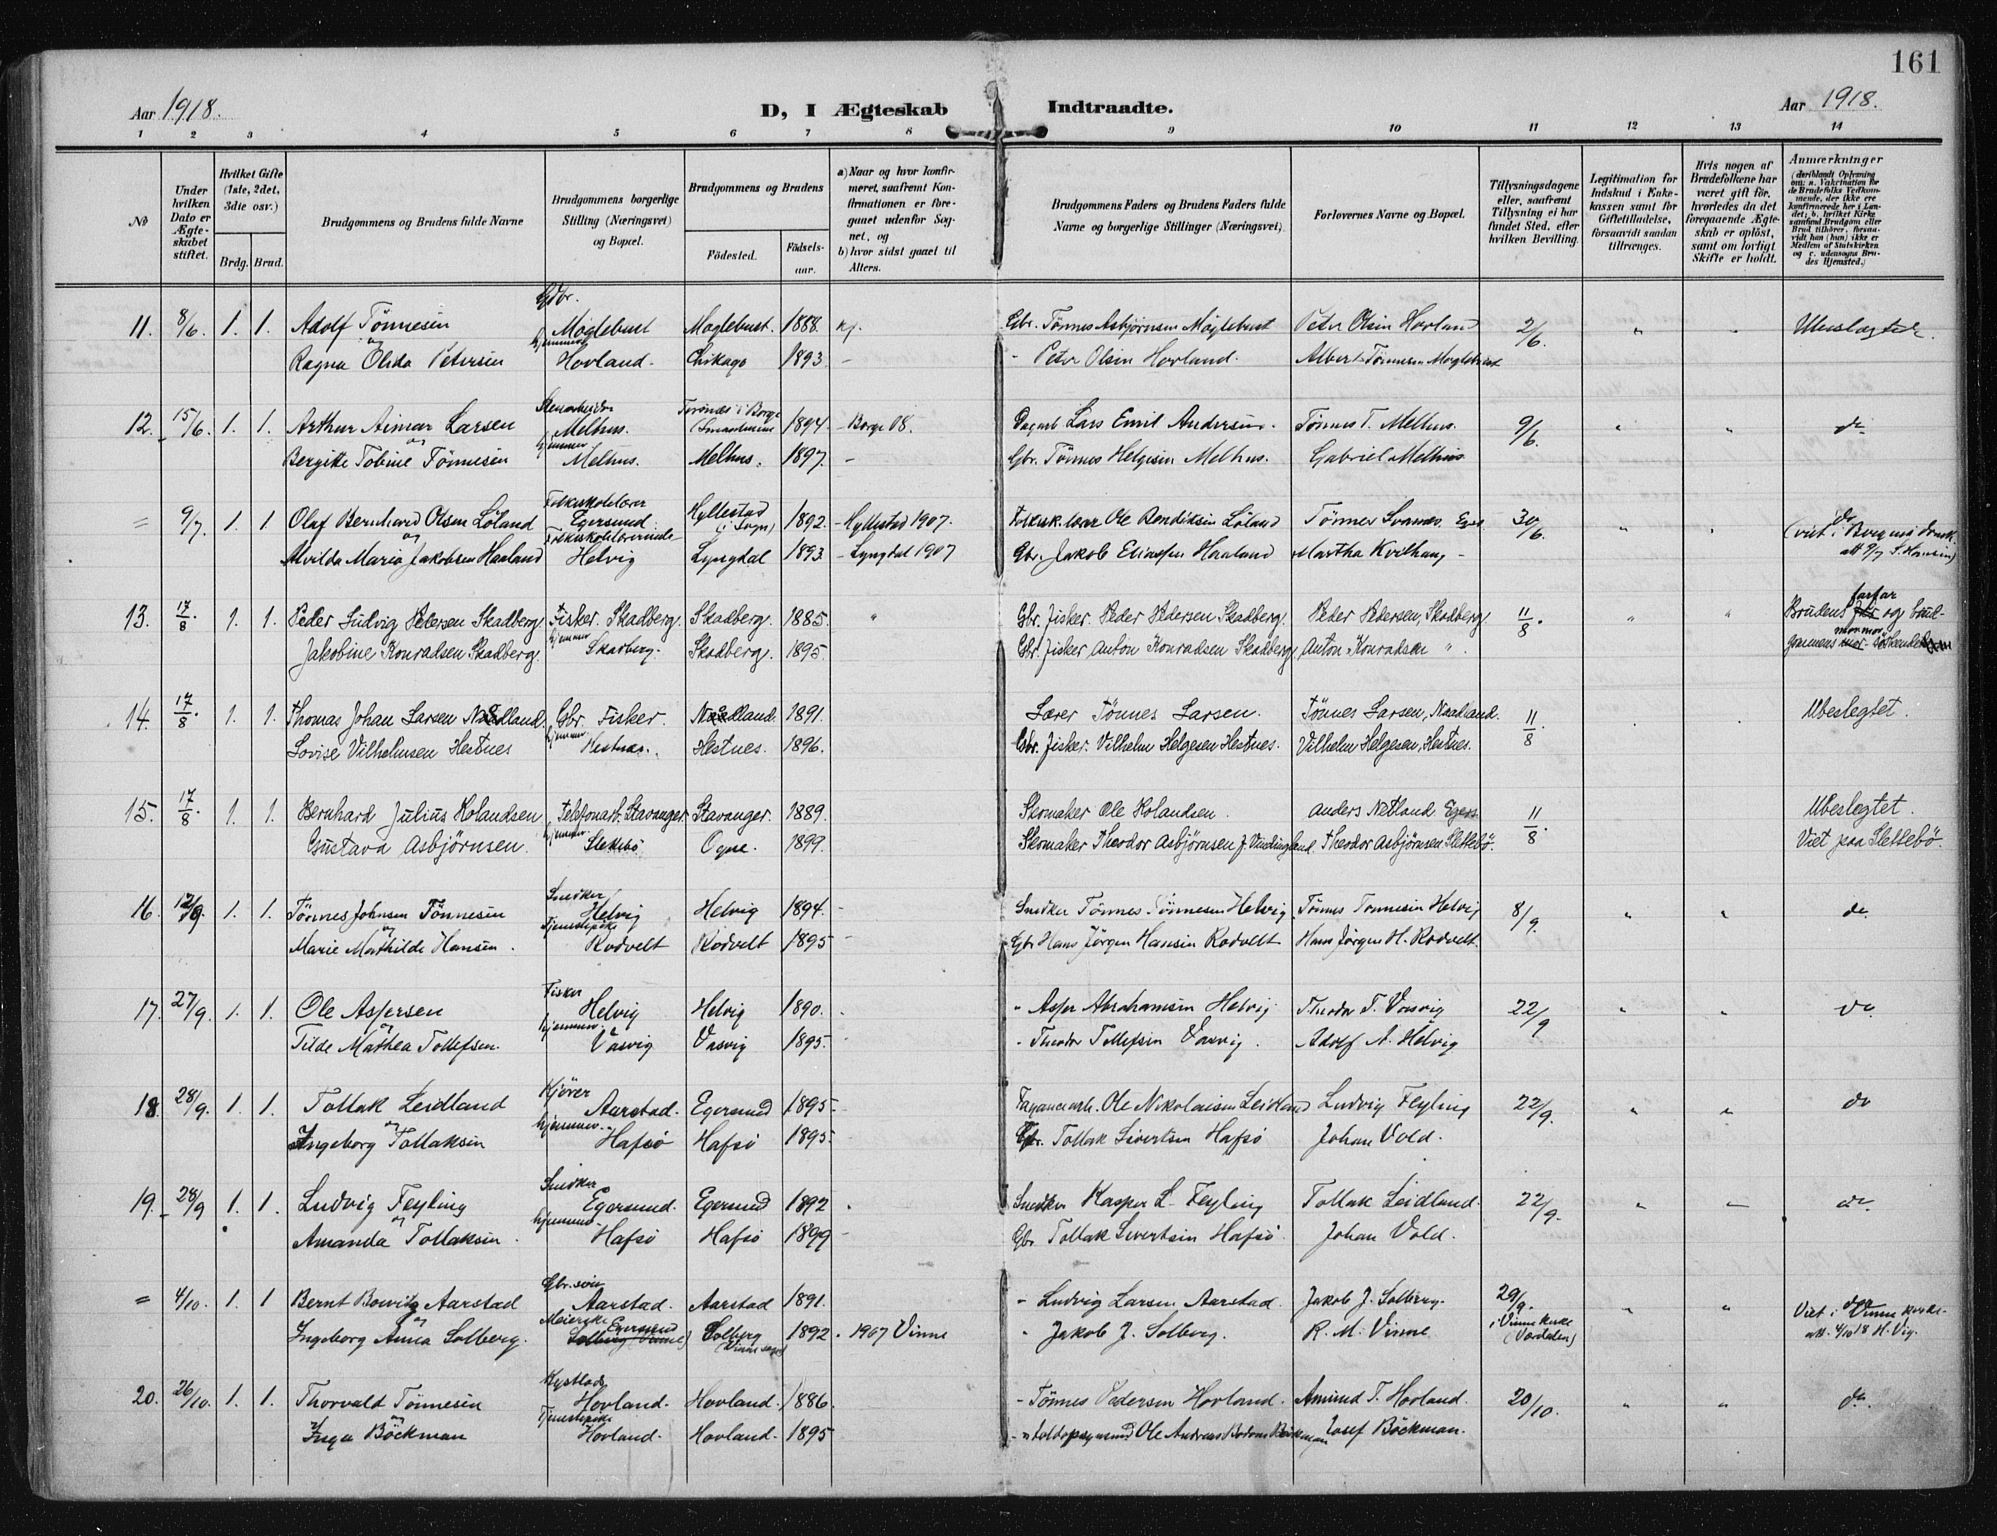 161
Aar 1918. D, I Ægteskab Indtraadte. Aar 1918.
1 2 3 4 5 6 7 8 9 10 11 12 13 14
No
Under hvilken Dato er Ægteskabet stiftet.
Hvilket Gifte (1ste, 2det, 3die osv.)
Brdg. Brud.
Brudgommens og Brudens fulde Navne
Brudgommens borgerlige Stilling (Næringsvei) og Bopæl.
Brudgommens og Brudens
Fødested. Fødselsaar.
a) Naar og hvor konfirmeret, saafremt Konfirmationen er foregaaet udenfor Sognet, og
b) hvor sidst gaaet til Alters.
Brudgommens Faders og Brudens Faders fulde Navne og borgerlige Stillinger (Næringsvei).
Forlovernes Navne og Bopæl.
Tillysningsdagene eller, saafremt Tillysning ei har fundet Sted, efter hvilken Bevilling.
Legitimation for Indskud i Enkekassen samt for Giftetilladelse, forsaavidt saadan tiltrænges.
Hvis nogen af Brudefolkene har været gift før, hvorledes da det foregaaende Ægteskab er opløst, samt om lovligt Skifte er holdt.
Anmærkninger (deriblandt Oplysning om: a. Vakcination for de Brudefolks Vedkommende, der ikke ere konfirmerede her i Landet; b. hvilket Kirkesamfund Brudgom eller Brud tilhører, forsaavidt han (hun) ikke er Medlem af Statskirken og c. udensogns Brudes Hjemsted.)
11. 8/6. 1. 1. Adolf Tönnesen Gbr. Møglebust Møglebust. 1888. Gbr. Tönnes Asbjørnsen Møglebust Peter Olsen Hovland 2/6. Ubeslægtede.
og
Ragna Olida Petersen hjemmev. Hovland. Chikago 1893 - - Peter Olsen Hovland. Albert Tönnesen Møglebust
12. 15/6. 1. 1. Arthur Aimar Larsen Stenarbeider Melhus. i Borge 1894. - Borge 08. Dagarb. Lars Emil Andersen. Tönnes T. Melhus. 9/6. do
og
Bergitte Tobine Tönnesen hjemmev. Melhus. Melhus. 1897. - Gbr. Tönnes Helgesen Melhus. Gabriel Melhus
= 9/7. 1. 1 Olaf Bernhard Olsen Löland Folkeskolelærer Egersund Hyllestad i Sogn) 1892. - Hyllestad 1907. Folkesk.lærer Ole Bendiksen Löland Tönnes Svanes. Egers 30/6. do
og
Alvilda Maria Jakobsen Haaland Folkeskolelærerinde Helvig Lyngdal 1893 - Lyngdal 1907 Gbr. Jakob Eriassen Haaland Martha Kvelhaug - (viet i Bergens domk. att 9/7 S. Hansen)
13. 17/8. 1. 1. Peder Ludvig Pedersen Skadberg. Fisker. Skadberg. Skadberg. 1885. Gbr. fisker Peder Pedersen Skadberg. Peder Pedersen, Skadberg. 11/8. Brudens farfar og brud-
Jakobine Konradsen Skadberg. hjemmev Skadberg. Skadberg. 1895. Gbr. fisker Anton Konradsen Skadberg. Anton Konradsen ". gommens mormor søskende
14. 17/8. 1. 1. Thomas Johan Larsen Nådland. Gbr. Fisker. Nådland. 1891. Lærer Tönnes Larsen. Tönnes Larsen, Naadland. 11/8 Ubeslegtet.
Lovise Vilhelmsen Hestnes hjemmev Hestnes. Hestnes. 1896. Gbr. fisker. Vilhelm Helgesen Hestnes. Vilhelm Helgesen, Hestnes.
15. 17/8 1. 1. Bernhard Julius Rolandsen Telefonarb. Stavanger. Stavanger. 1889. Skomaker Ole Rolandsen. Anders Netland Egers. 11/8. Ubeslegtet.
Gustava Asbjørnsen. hjemmev Slettebö Ogne. 1899. Skomaker Theodor Asbjørnsen f. Vindingland. Theodor Asbjørnsen Slettebö. Viet paa Slettebö.
16. 12/9. 1. 1. Tönnes Johnsen Tönnesen Snedker Helvig Helvig 1894. - Snedker Tönnes Tönnesen Helvig Tönnes Tönnesen Helvig 8/9. do.
og
Marie Mathilde Hansen. Tjenestepike Rodvelt Rodvelt 1895 - Gbr Hans Jörgen Hansen Rodvelt Hans Jörgen H. Rodvelt
17. 27/9. 1. 1. Ole Aspersen Fisker Helvig Helvig 1890. " Asper Abrahamsen Helvig Theodor T. Vasvig 22/9 do
og
Tilde Mathea Tollefsen. hjemmev. Vasvig Vasvig 1895. - Theodor Tollefsen Vasvig. Adolf A. Helvig
18. 28/9. 1. 1. Tollak Leidland Kjörer Aarstad. Egersund 1895. Fayancearb. Ole Nikolaisen Leidland Ludvig Feyling 22/9. do
og
Ingeborg Tollaksen hjemmev. Hafsö Hafsö 1895. Gbr. Tollak Sivertsen Hafsö Johan Vold.
19. 28/9 1. 1. Ludvig Feyling Snedker Egersund. Egersund 1892 Snedker Kasper L. Feyling Tollak Leidland. 22/9. do.
og
Amanda Tollaksen. hjemmev. Hafsö Hafsö 1899 Gbr Tollak Sivertsen Hafsö Johan Vold.
= 4/10. 1. 1 Bernt Bowitz Aarstad Gbr. sön Aarstad. Aarstad 1891. - Ludvig Larsen Aarstad. Jakob J. Solberg. 29/9. do
og
Ingeborg Anna Solberg. Meierske Egersund Solberg Vinne) Solberg (Vinne sogn) 1892. - 1907 Vinne " Jakob J. Solberg. R. M. Vinne i Vinne kirke (Værdalen) Viet i Vinne kirke. att. 4/10 18 H. Vig.
20. 26/10. 1. 1. Thorvald Tönnesen Hovland. Hovland. 1886. - Tönnes Pedersen Hovland. Amund T. Hovland. 20/10. do.
og
Inga Böckman Tjenestepike Hovland. Hovland. 1895 Ole Andreas Böckman Josef Böckman.